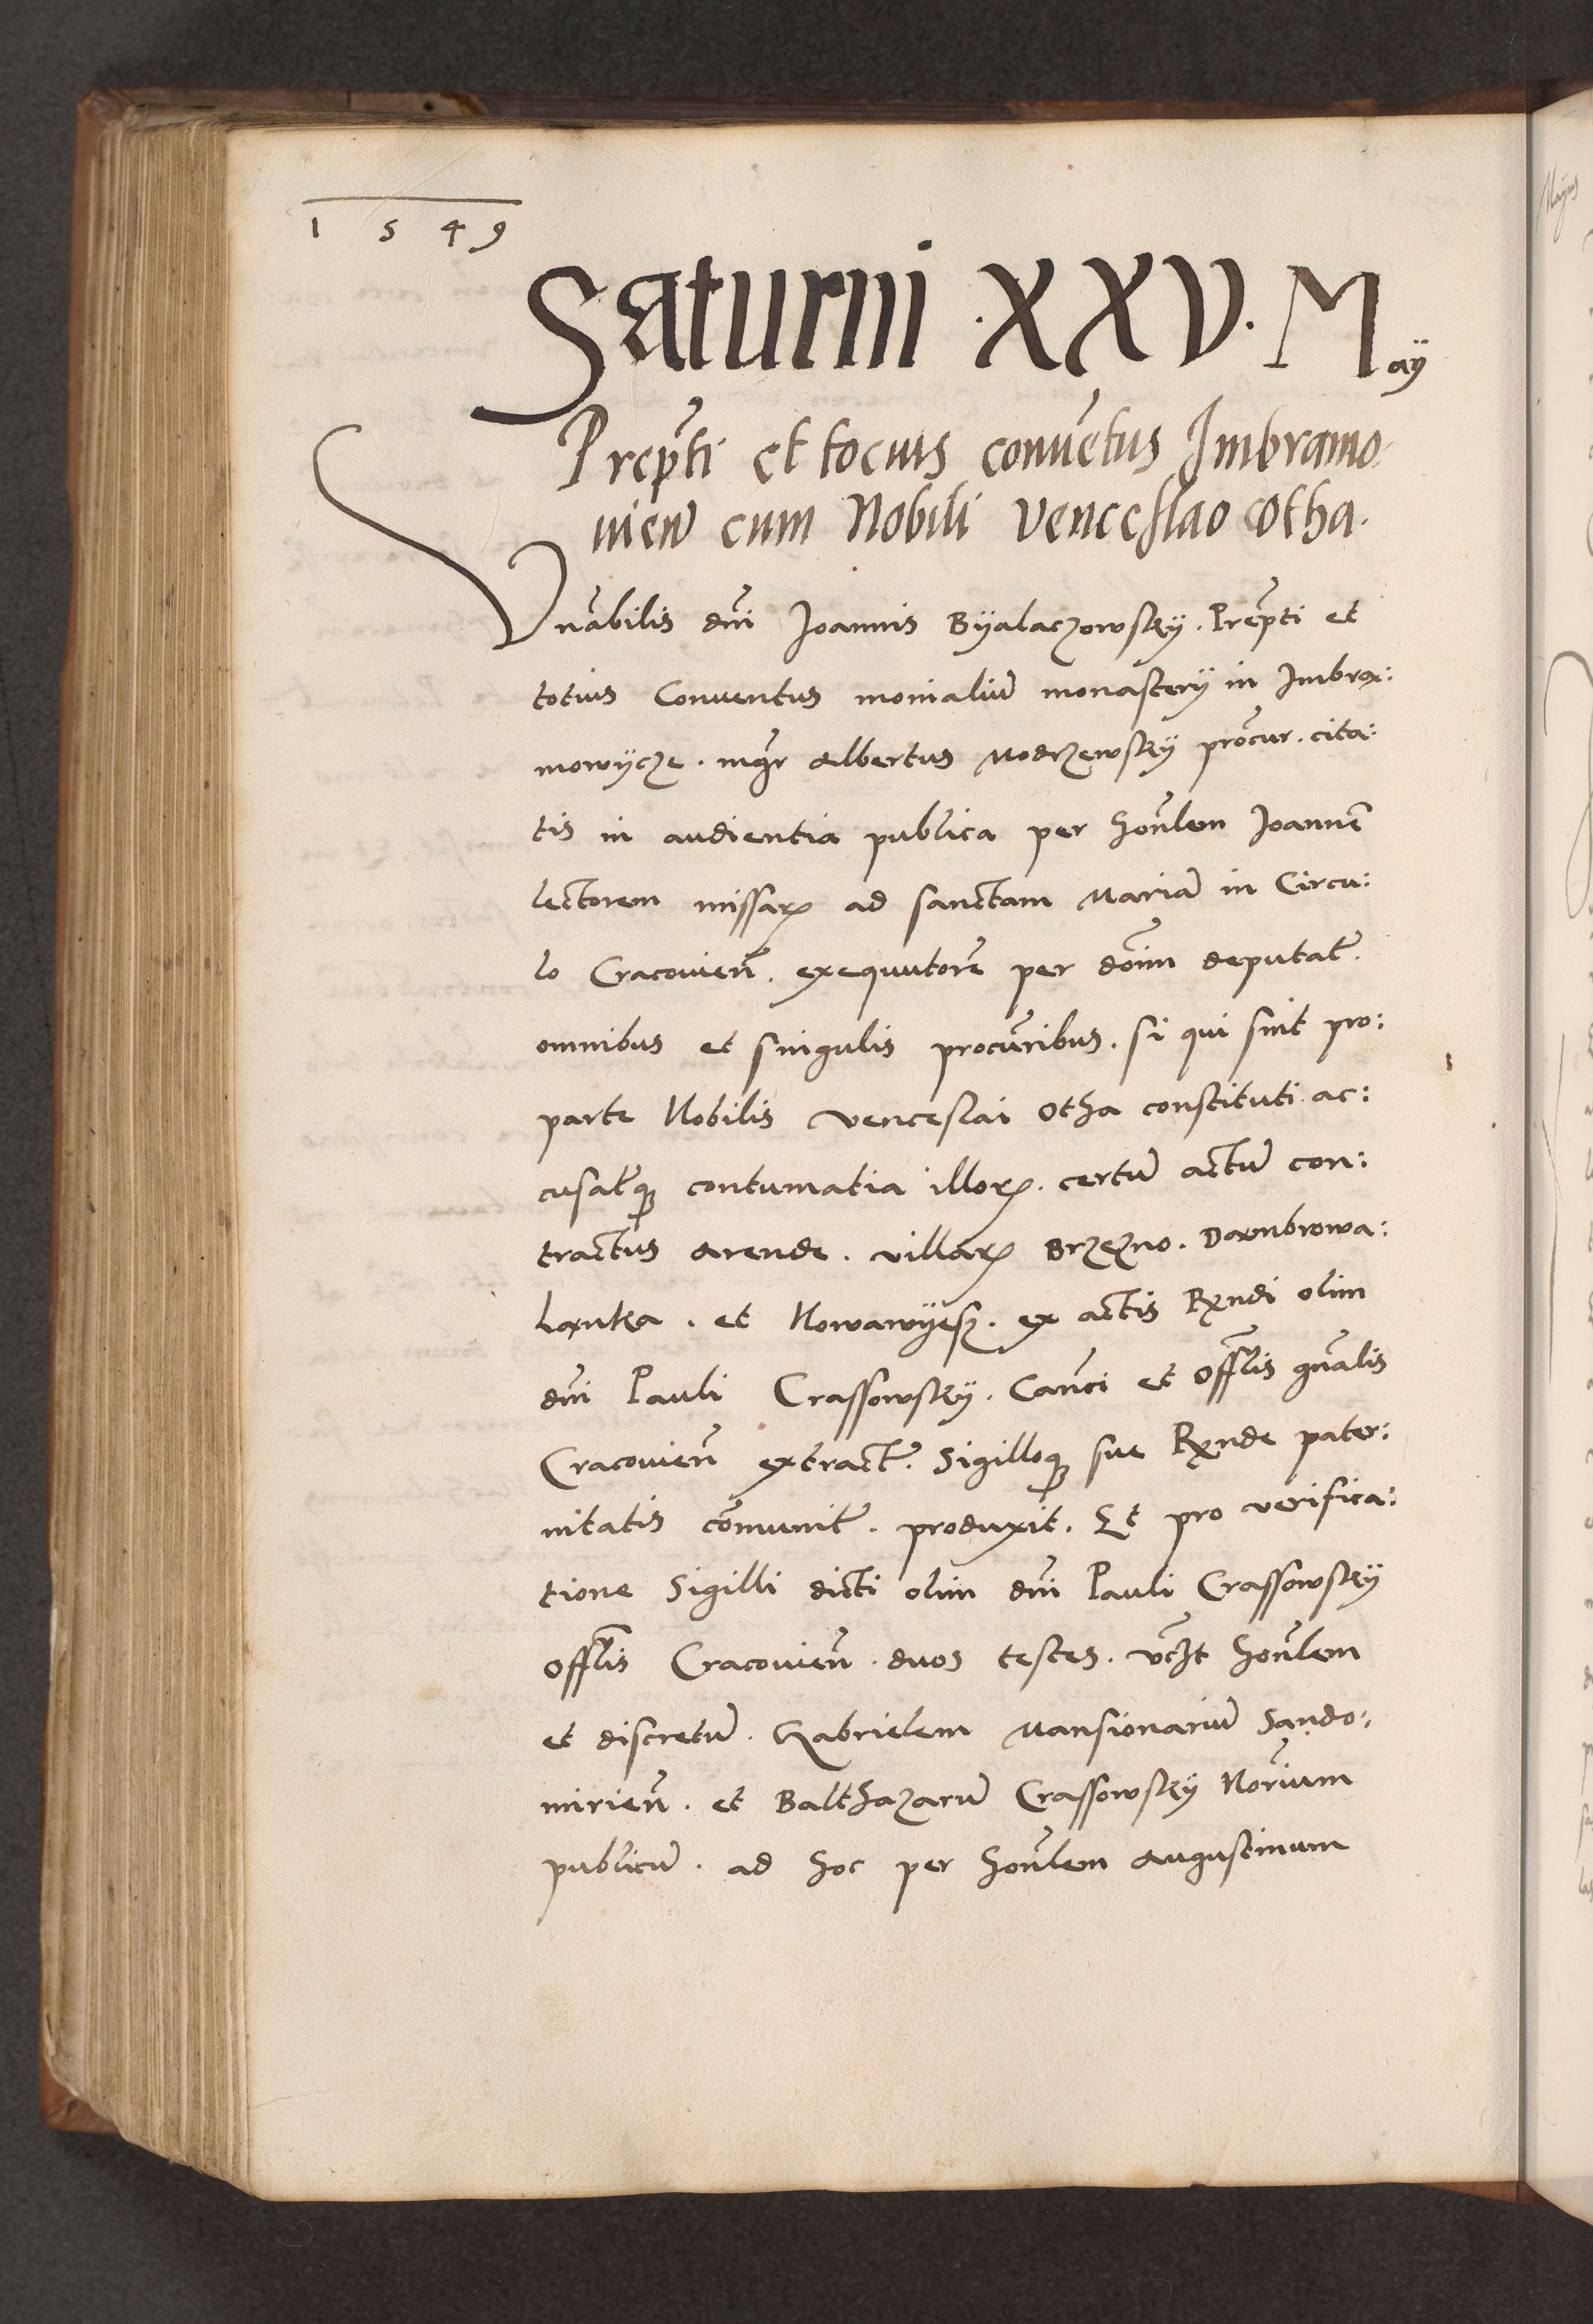 1549
Saturni .XXV. May
Prep̃ti et tocius conuẽtus Imbramo
uieñ cum Nobili Venceslao Otha.
Vnãbilis dñi Joannis Byalaczowsky. Prep̃ti et
totius Conuentus monialiũ monastery in Imbra:
mowycze. mgr̃ Albertus Modrzewsky procur̃. cita:
tis in audientia publica per hoñlem Joannẽ
lectorem missaꝝ ad sanctam Mariã in Circu:
lo Cracouieñ. exequutorẽ per doim̃ deputat̃.
omnibus et singulis procur̃ibus. si qui sint pro:
parte Nobilis Venceslai Otha constituti. ac:
cusat̃qꝫ contumatia illoꝝ. certũ actũ con:
tractus Arende. villaꝝ Brzezno. Dambrowa:
Lanka. et Nowawyesz. ex actis Rx̃ndi olim
dñi Pauli Crassowsky. Cañci et Offl̃is gñalis
Cracouieñ extract̃. Sigilloqꝫ sue Rx̃nde pater:
nitatis cõmunit̃. produxit. Et pro verifica:
tione Sigilli dicti olim dñi Pauli Crassowsky
Offl̃is Cracouieñ. duos testes. vcz̃t hoñlem
et discretũ. Gabrielem Mansionariũ Sando:
mirieñ. et Balthazarũ Crassowsky Nor̃ium
publicũ. ad hoc per hoñlem Augustinum